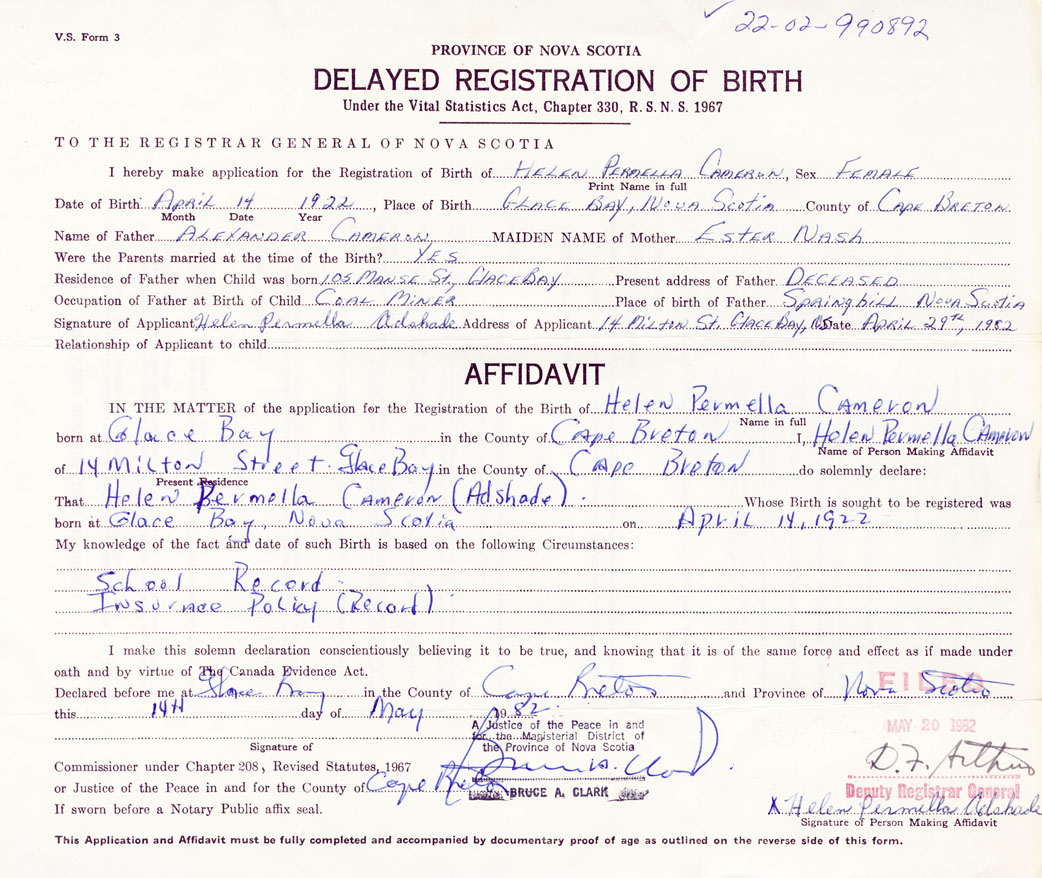 22-02-990892
V.S. Form 3
PROVINCE OF NOVA SCOTIA
DELAYED REGISTRATION OF BIRTH
Under the Vital Statistics Act, Chapter 330, R.S.N.S. 1967
TO THE REGISTRAR GENERAL OF NOVA SCOTIA
I hereby make application for the Registration of Birth of HELEN PERMELLA CAMERON, Sex FEMALE
Print Name in full
Date of Birth APRIL 14 1922, Place of Birth GLACE BAY, NOVA SCOTIA County of CAPE BRETON
Month Date Year
Name of Father ALEXANDER CAMERON, MAIDEN NAME of Mother ESTER NASH
Were the Parents married at the time of the Birth? YES
Residence of Father when Child was born 105 MANSE ST, GLACE BAY Present address of Father DECEASED
Occupation of Father at Birth of Child COAL MINER Place of birth of Father SPRINGHILL NOVA SCOTIA
Signature of Applicant Helen Permella Adshade Address of Applicant 14 MILTON ST. GLACE BAY, NS Date APRIL 29TH, 1982
Relationship of Applicant to child
AFFIDAVIT
IN THE MATTER of the application for the Registration of the Birth of Helen Permella Cameron
Name in full
born at Glace Bay in the County of Cape Breton I, Helen Permella Cameron
Name of Person Making Affidavit
of 14 Milton Street. Glace Bay in the County of Cape Breton do solemnly declare:
Present Residence
That Helen Permella Cameron (Adshade). Whose Birth is sought to be registered was
born at Glace Bay, Nova Scotia on April 14, 1922
My knowledge of the fact and date of such Birth is based on the following Circumstances:
School Record
Insurnace Policy (Record)
I make this solemn declaration conscientiously believing it to be true, and knowing that it is of the same force and effect as if made under
oath and by virtue of The Canada Evidence Act.
Declared before me at Glace Bay in the County of Cape Breton and Province of Nova Scotia
FILED
this 14th day of May 1982.
A Justice of the Peace in and
for the Magisterial District of
the Province of Nova Scotia
MAY 20 1982
Signature of
D.F. Arthur
Commissioner under Chapter 208, Revised Statutes, 1967
or Justice of the Peace in and for the County of Cape Breton
BRUCE A. CLARK
Deputy Registrar General
X Helen Permella Adshade
If sworn before a Notary Public affix seal.
Signature of Person Making Affidavit
This Application and Affidavit must be fully completed and accompanied by documentary proof of age as outlined on the reverse side of this form.